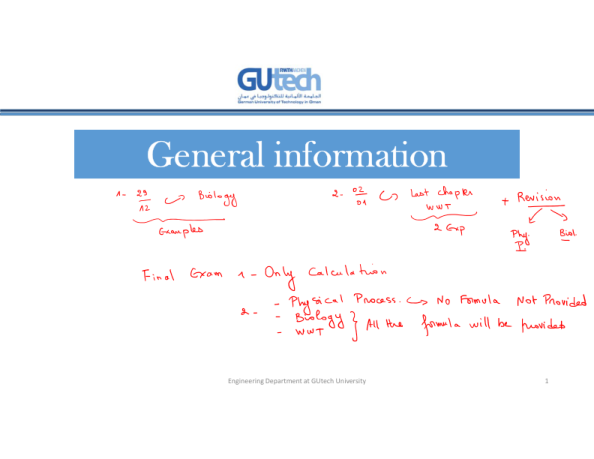 GUtech
الجامعة الألمانية للتكنولوجيا في عمان
German University of Technology in Oman
General information
1- 29/12 Biology
Examples
2- 02/01 Last chapter
WWT
2 Exp
+ Revision
Phy. Biol.
P
Final Exam 1- Only Calculation
2- - Physical Process. No Formula Not Provided
- Biology
- WWT
All the formula will be provided
Engineering Department at GUtech University 1